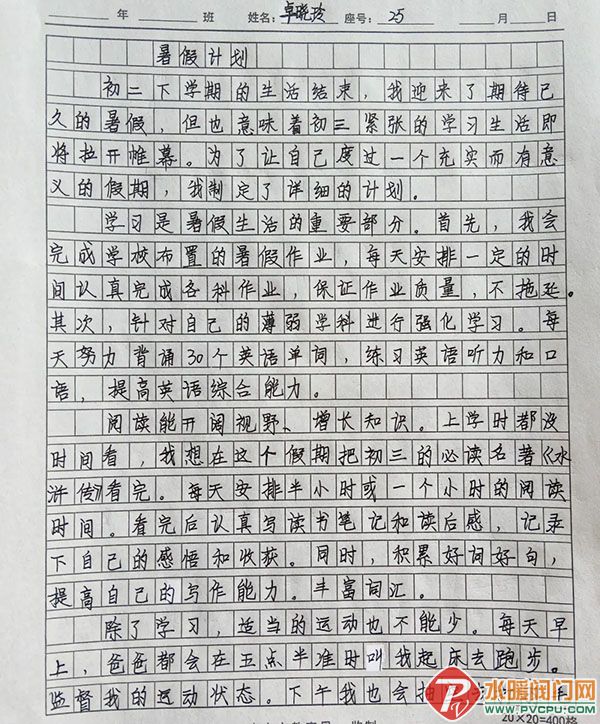 年 班 姓名：卓晓玲 座号：25 月 日
暑假计划
初二下学期的生活结束，我迎来了期待已
久的暑假，但也意味着初三紧张的学习生活即
将拉开帷幕。为了让自己度过一个充实而有意
义的假期，我制定了详细的计划。
学习是暑假生活的重要部分。首先，我会
完成学校布置的暑假作业，每天安排一定的时
间认真完成各科作业，保证作业质量，不拖延。
其次，针对自己的薄弱学科进行强化学习。每
天努力背诵30个英语单词，练习英语听力和口
语，提高英语综合能力。
阅读能开阔视野、增长知识。上学时都没
时间看，我想在这个假期把初三的必读名著《水
浒传》看完。每天安排半小时或一个小时的阅读
时间。看完后认真写读书笔记和读后感，记录
下自己的感悟和收获。同时，积累好词好句，
提高自己的写作能力。丰富词汇。
除了学习，适当的运动也不能少。每天早
上，爸爸都会在五点半准时叫我起床去跑步。
监督我的运动状态。下午我也会抽
水暖阀门网
PVCPU.COM
20×20=400格